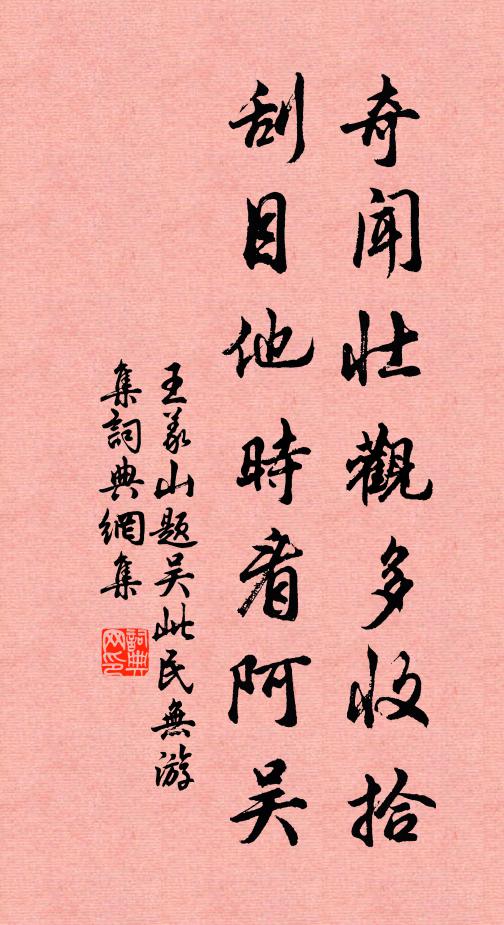 奇聞壯觀多收拾
刮目他時看阿吴
王義山題吴此民無游
集詞典網集
詞典网印